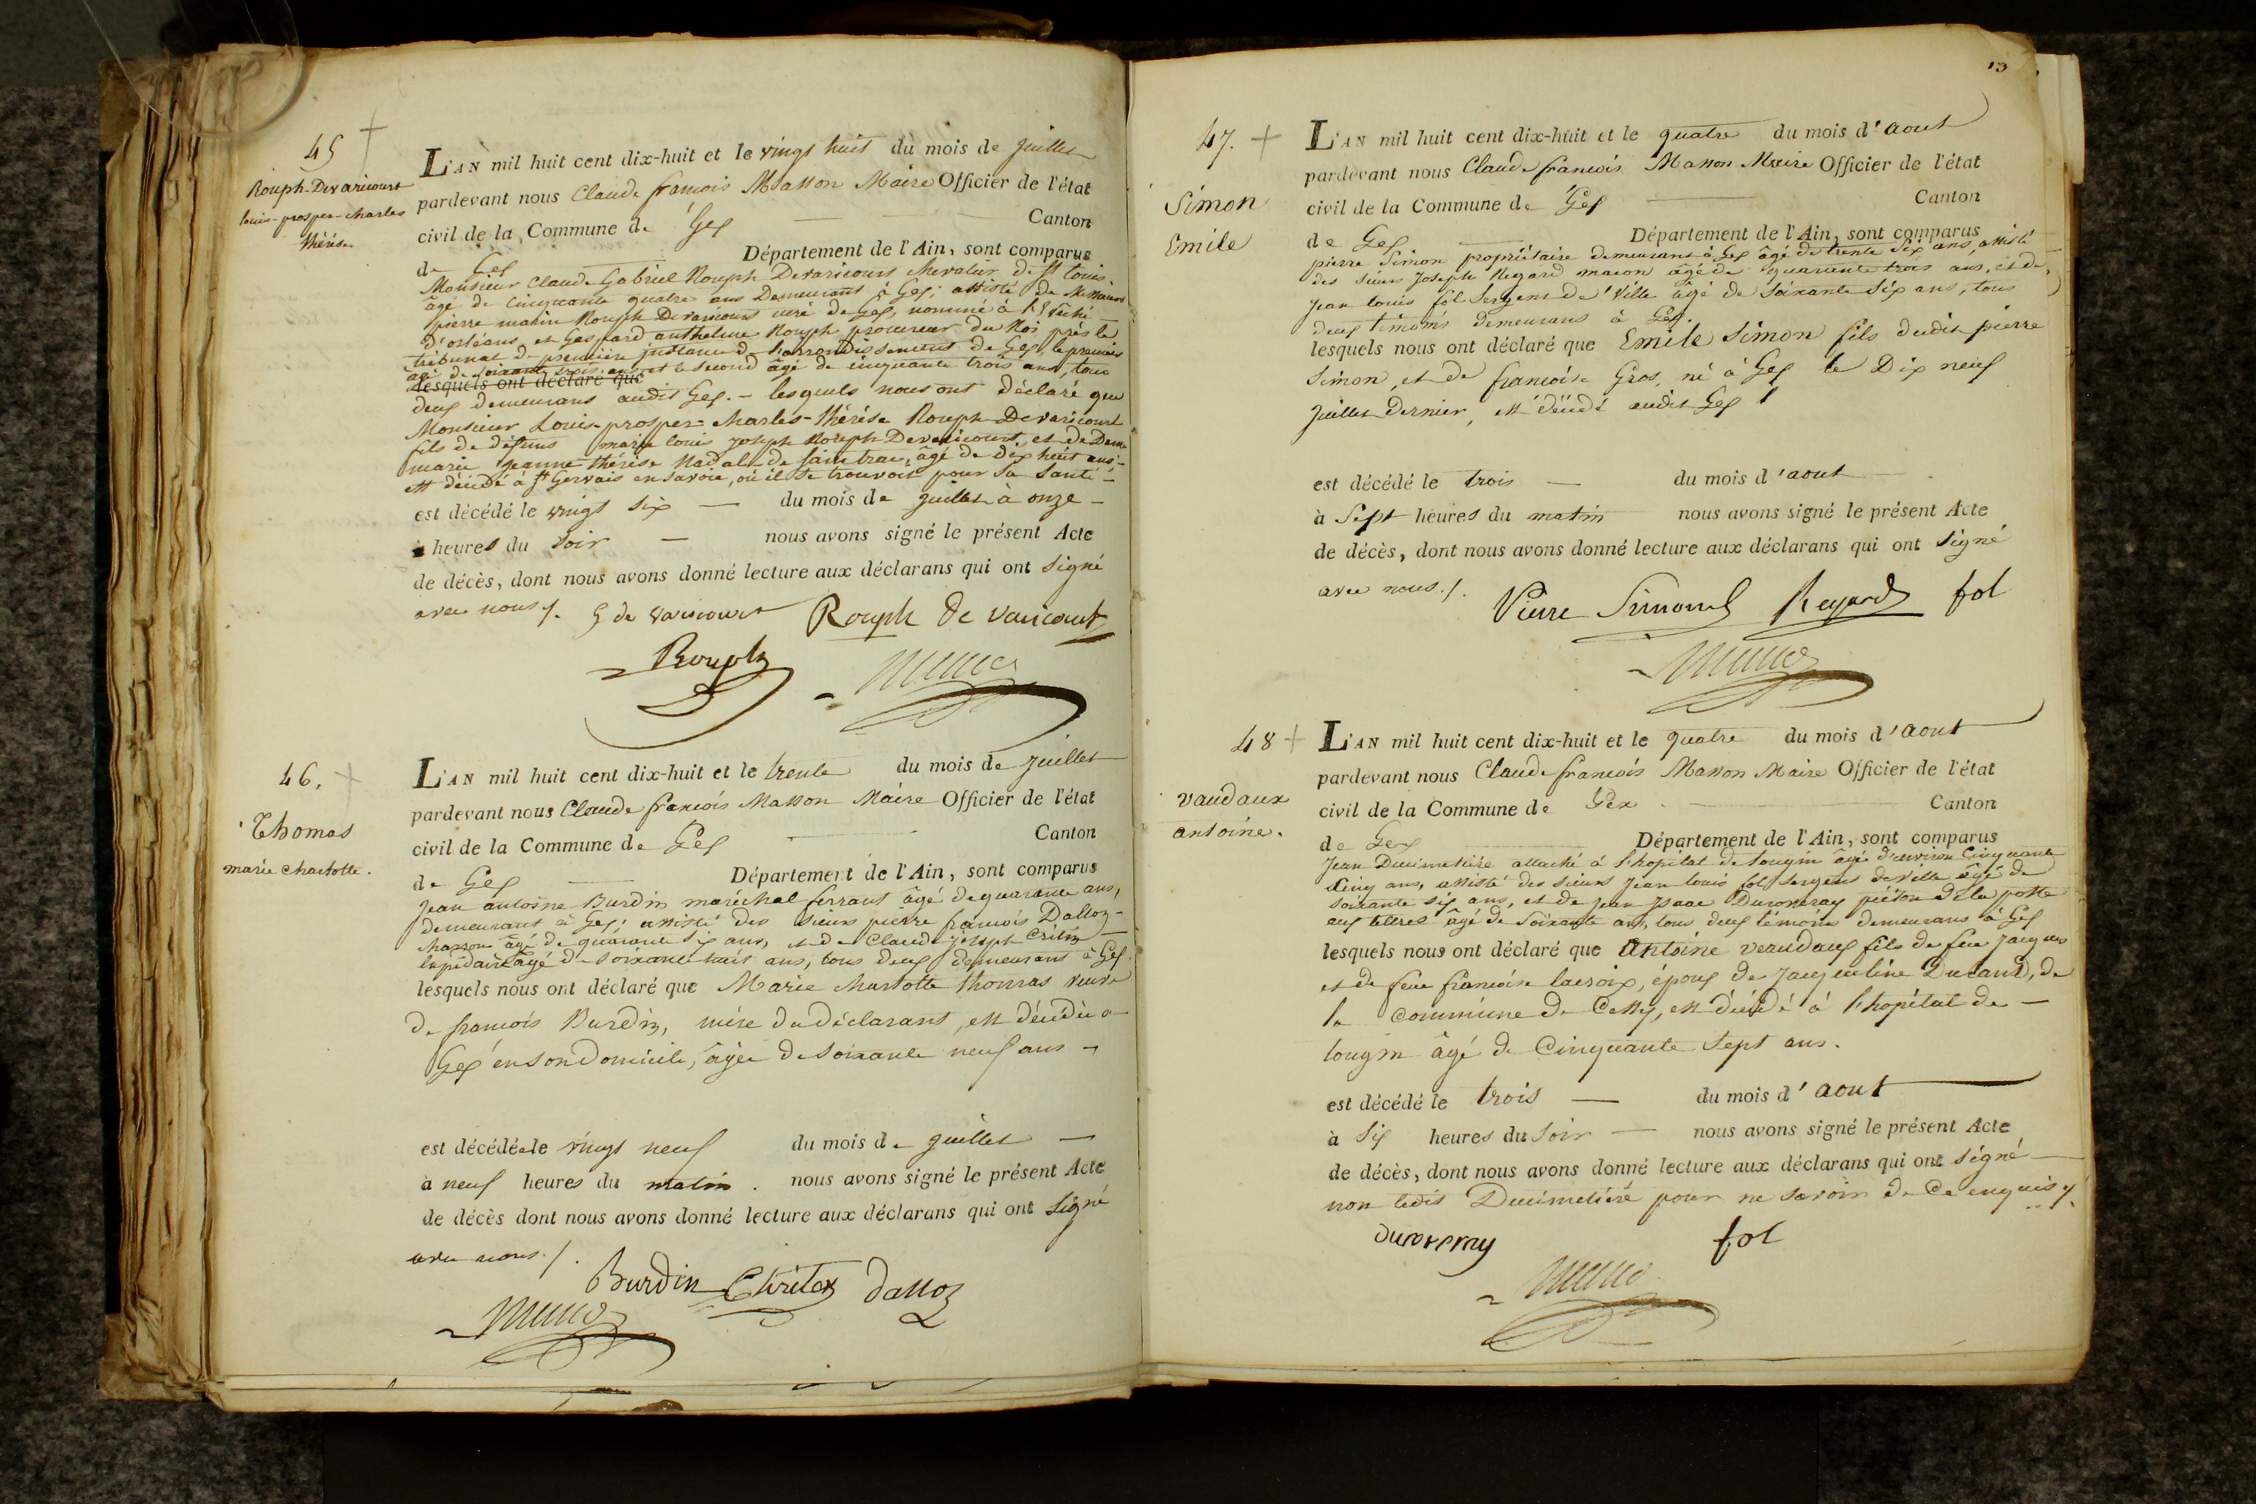 45
Rouph-Devaricourt
louis-prosper-charles
thérèse
L'AN mil huit cent dix-huit et le vingt huit du mois de juillet
pardevant nous Claude françois Masson Maire Officier de l'état
civil de la Commune de Gex Canton
de Gex Département de l'Ain, sont comparus
Monsieur Claude Gabriel Rouph Devaricourt chevalier de st louis
âgé de cinquante quatre ans Demeurant à Gex; assisté de Messieurs
pierre marin Rouph Devaricourt curé de Gex, nommé à l'Evêché
d'orléans, et Gaspard anthelme Rouph procureur du Roi près le
tribunal de première instance de l'arrondissement de Gex, le premier
âgé de soixante trois ans et le second âgé de cinquante trois ans, tous
lesquels ont déclaré que
deux demeurans audit Gex. - lesquels nous ont déclaré que
Monsieur Louis-prosper-charles-thérèse Rouph-Devaricourt
fils de défunts marie louis joseph Rouph Devaricourt, et de Dame
marie jeanne thérèse Nadal de saintrac, âgé de dix huit ans;
est décédé à st Gervais en savoie, où il se trouvoit pour sa santé
est décédé le vingt six du mois de juillet à onze
heures du soir nous avons signé le présent Acte
de décès, dont nous avons donné lecture aux déclarans qui ont signé
avec nous /.
G de varicourt Rouph de varicourt
Rouph
46.
Thomas
marie charlotte.
L'AN mil huit cent dix-huit et le trente du mois de juillet
pardevant nous Claude françois Masson Maire Officier de l'état
civil de la Commune de Gex Canton
de Gex Département de l'Ain, sont comparus
Jean antoine Burdin maréchal ferrant âgé de quarante ans,
demeurant à Gex; assisté des sieurs pierre françois Dalloz
âgé de quarante six ans, et de Claude joseph
lapidaire âgé de soixante huit ans, tous deux demeurans à Gex
lesquels nous ont déclaré que Marie charlotte thomas veuve
de françois Burdin, mère du déclarant, est décédée à
Gex en son Domicile, âgée de soixante neuf ans
est décédée le vingt neuf du mois de juillet
à neuf heures du matin. nous avons signé le présent Acte
de décès dont nous avons donné lecture aux déclarans qui ont signé
avec nous /.
Burdin dalloz
13
47.
Simon
Emile
L'AN mil huit cent dix-huit et le quatre du mois d'aout
pardevant nous Claude françois Masson Maire Officier de l'état
civil de la Commune de Gex Canton
de Gex Département de l'Ain, sont comparus
pierre Simon propriétaire demeurant à Gex âgé de trente six ans, assisté
des sieurs Joseph Regard maçon âgé de quarante trois ans, et de
Jean louis fol sergent de Ville âgé de soixante six ans, tous
deux témoins demeurans à Gex.
lesquels nous ont déclaré que Emile Simon fils dudit pierre
Simon, et de françoise Gros, né à Gex le Dix neuf
juillet dernier, est décédé audit Gex
est décédé le trois du mois d'aout
à sept heures du matin nous avons signé le présent Acte
de décès, dont nous avons donné lecture aux déclarans qui ont signé
avec nous./.
Pierre Simond Regard fol
48
vaudaux
antoine.
L'AN mil huit cent dix-huit et le quatre du mois d'aout
pardevant nous Claude françois Masson Maire Officier de l'état
civil de la Commune de Gex Canton
de Gex Département de l'Ain, sont comparus
Jean Ducimetière attaché à l'hopital de tougin âgé d'environ Cinquante
Cinq ans, assisté des sieurs Jean louis fol sergent de ville âgé de
soixante six ans, et de Jean Isaac Duroveray piéton de la poste
aux lettres âgé de soixante ans, tous deux témoins demeurans à Gex
lesquels nous ont déclaré que Antoine veaudaux fils de feu Jacques
et de feue françoise lacroix, époux de Jacqueline Durand, de
la Commune de Cessy, est décédé à l'hopital de
tougin âgé de Cinquante sept ans.
est décédé le trois du mois d'aout
à six heures du soir nous avons signé le présent Acte
de décès, dont nous avons donné lecture aux déclarans qui ont signé
non ledit Ducimetière pour ne savoir de ce enquis /.
duroveray fol